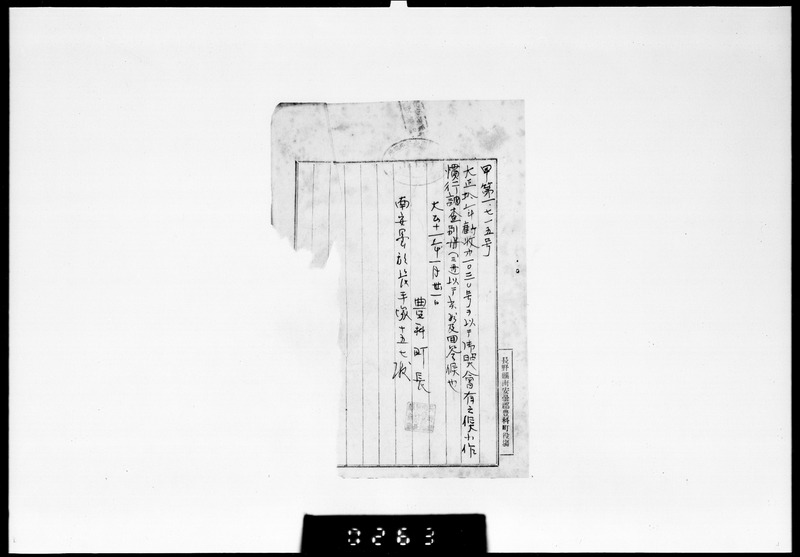 甲第一七一五号
大正十年勧收第一〇三〇号ヲ以テ御照会有之候小作
慣行調査別冊(三通)以テ及回答候也
大正十一年一月廿一日
豊科町長
南安曇郡長平塚
長野縣南安曇郡豊科町役場
0263